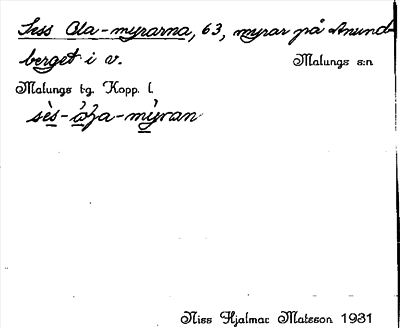 Sess Ola-myrarna, 63, myrar på Anund-
berget i v. Malungs s:n
Malungs tg. Kopp. l.
sès-ò̱ɀa-mỳran
Niss Hjalmar Matsson 1931